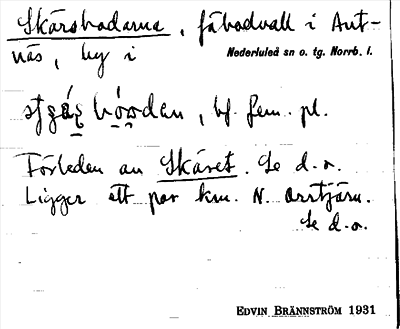 Skärsbodarna, fäbodvall i Ant-
näs, by i Nederluleå sn o. tg. Norrb. l.
bf. fem. pl.
Förleden av Skäret. Se d.o.
Ligger ett par km. N. Orrtjärn.
Se d.o.
EDVIN BRÄNNSTRÖM 1931